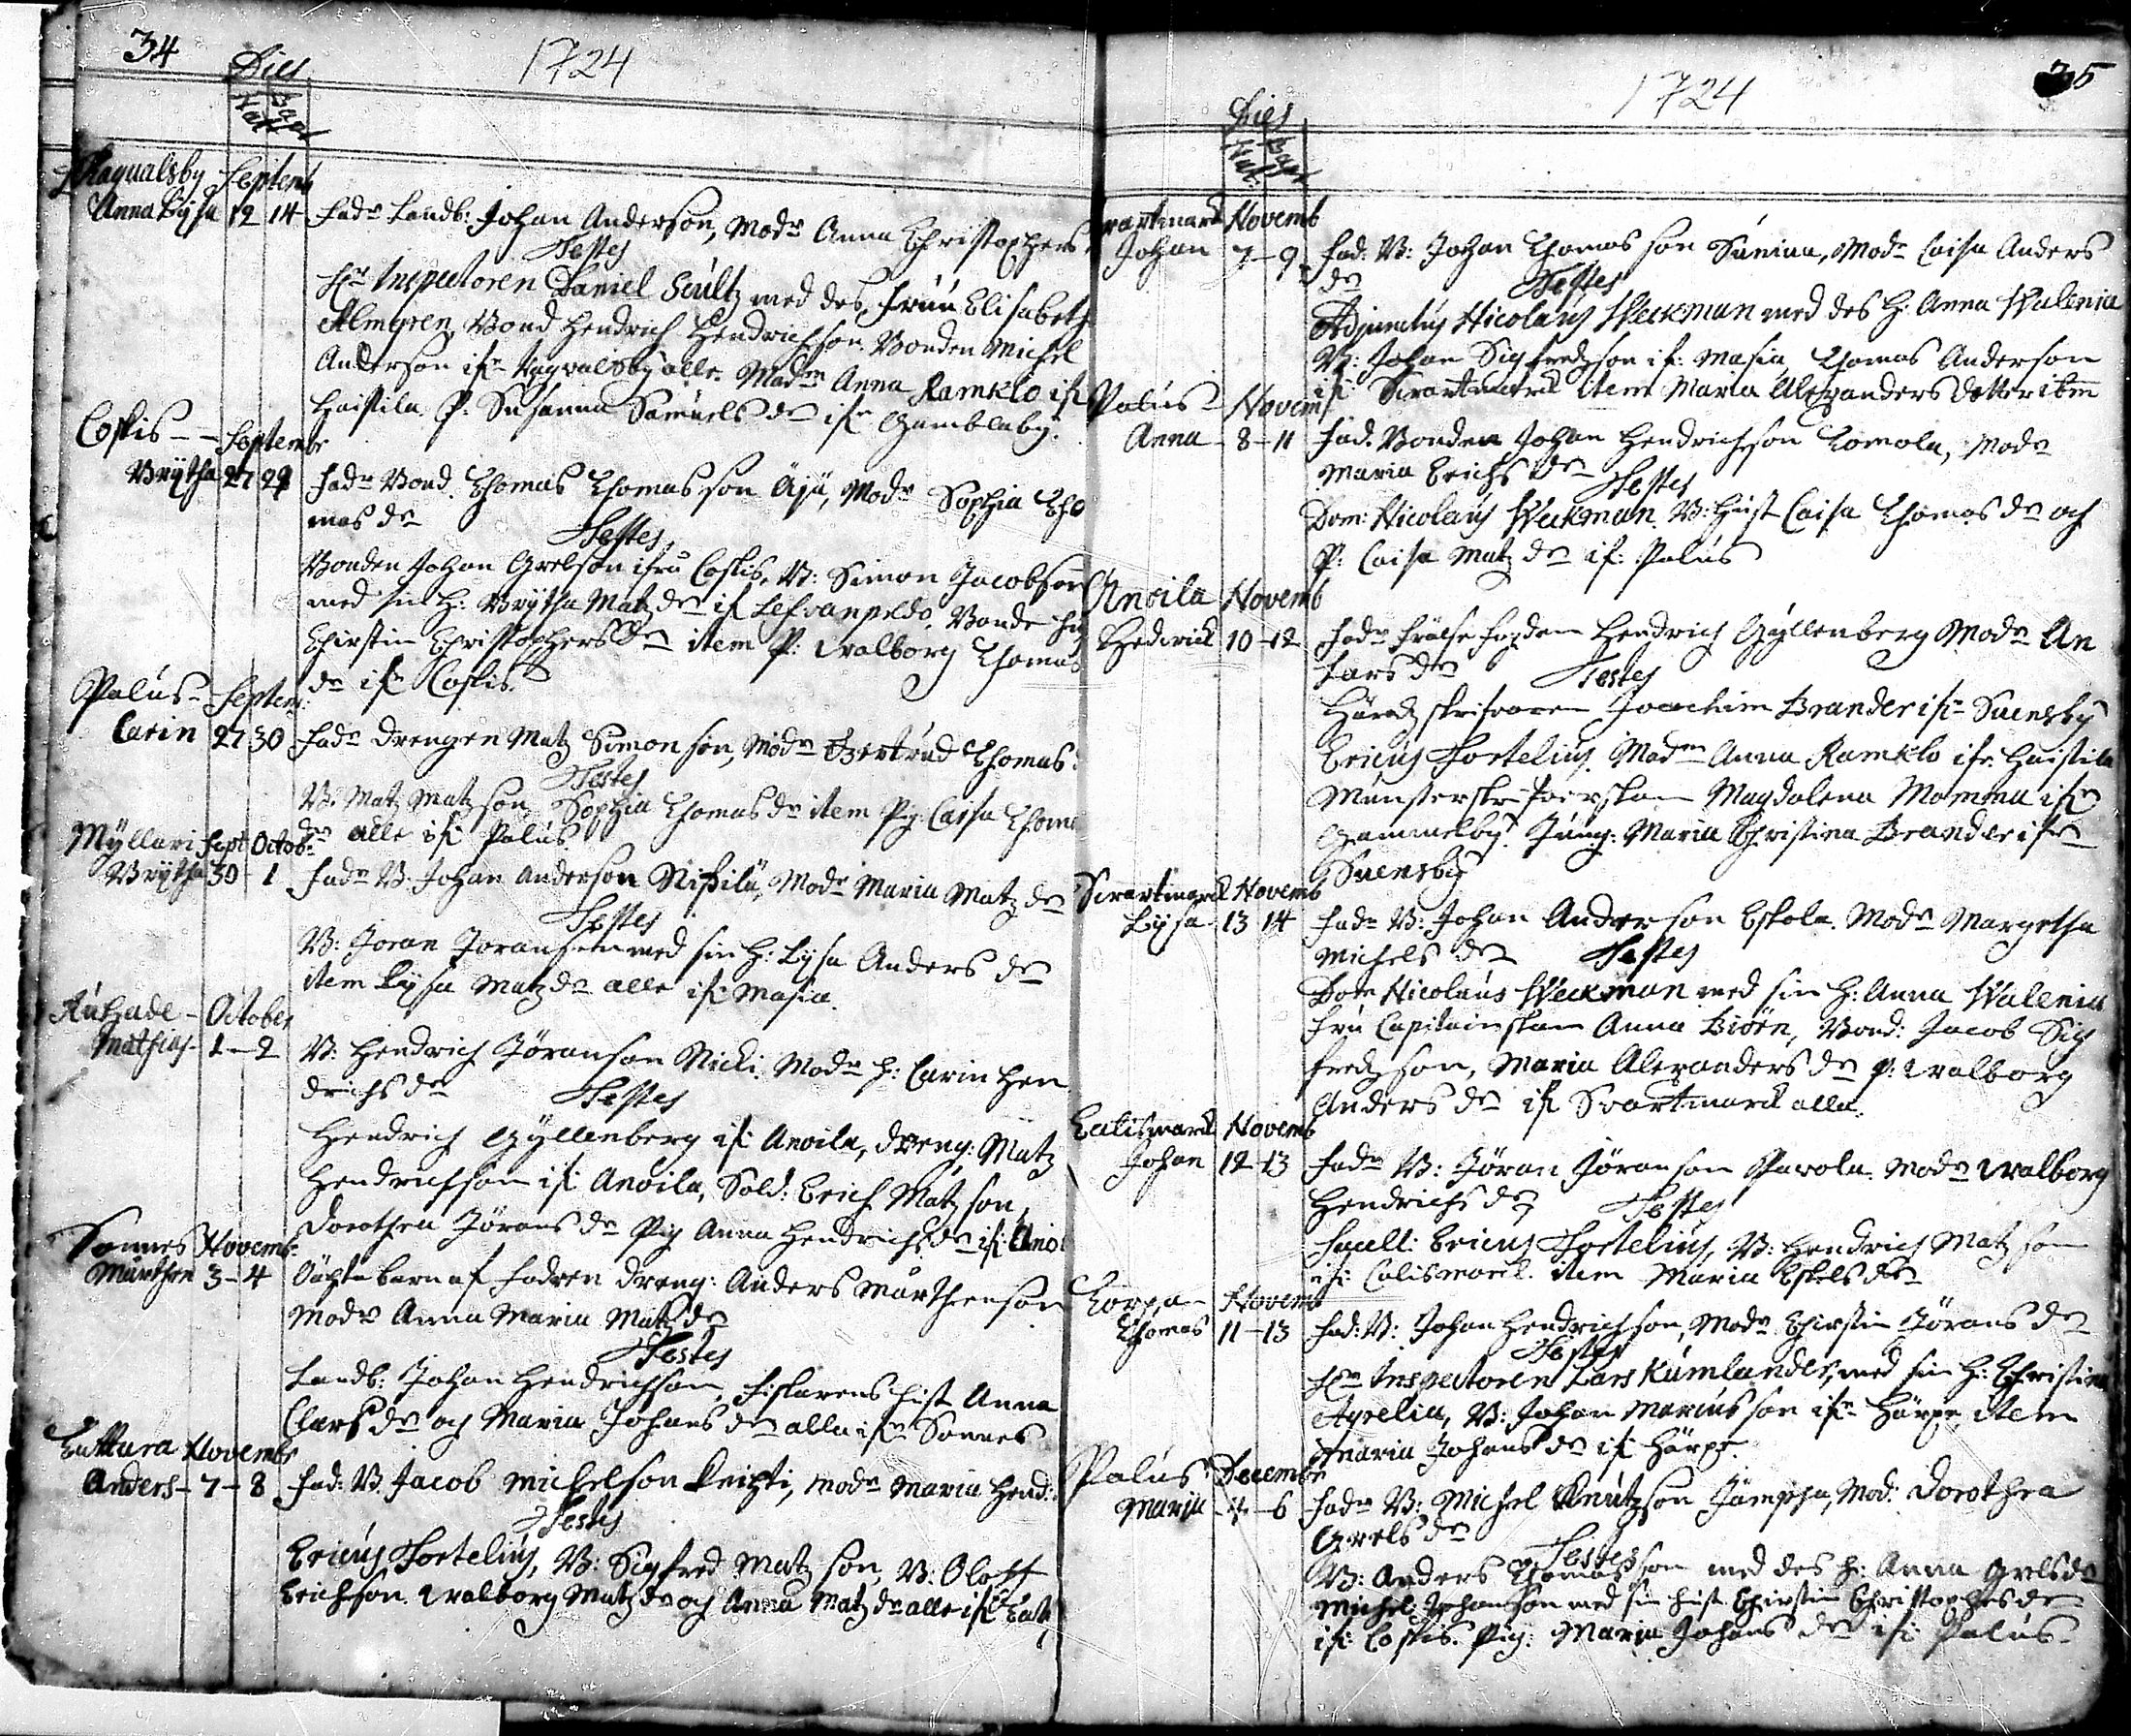 34
1724
Dies
Nat Bapt
Ragualsby Septemb
Anna Lysa 12 14 Fadr Landb: Johan Anderson, Modr Anna Christophers
Testes
Hr Inspectoren Daniel Scultz med des fruu Elisabeth
Almgren, Bond Hendrich Hendrichson Bonden Michel
Anderson ifr Ragvalsby alle. Madm Anna Ramklo if
Haistila. P: Susanna Samuels dr ifr Gambleby.
Coskis - - Septembr
Brytha 27 29 Fadr Bond. Thomas Thomas son Äjü, Modr Sophia Tho
mas dr
Testes
Bonden Johan Grelson ifrå Coskis, B: Simon Jacobson
med sin H: Brytha Matz dr if Lefvanpeldo. Bonde hu
Chirstin Christophers dr item P: Walborg Thomas
dr ifr Coskis.
Palus - Septem:
Carin 27 30 Fadr Drengen Matz Simon son, Modr Gertrud Thomas:
Testes
B: Matz Matz son, Sophia Thomas dr item Pig: Caisa Thoma
dr alle if: Palus
Myllari Sept Octob:
Brytha 30 - 1 Fadr B. Johan Anderson Nissilä, Modr Maria Matz dr
Testes
B: Joran Joranson med sin H: Lysa Anders dr
item Lysa Matz dr alle if: Masia.
Ruhade - October
Mathias 1 - 2 B: Hendrich Jöranson Nicki. Modr H: Carin Hen
drichs dr
Testes
Hendrich Gyllenberg if: Anoila, dreng: Matz
Hendrichson if: Anoila, Sold: Erich Matz son,
Dorothea Jörans dr Pig Anna Hendrichs dr if: Anoi
Sonnes Novemb:
Mårthen 3 - 4 Oächta barn af Fadren Dreng: Anders Mårthenson
Modr Anna Maria Matz dr
Testes
Landb: Johan Hendrichson, Fiskarens hust Anna
Clars dr och Maria Johans dr alla ifr Sonnes
Lattura Novembr
Anders - 7 - 8 Fad: B. Jacob Michelson Knihti, Modr Maria Hend:
Testes
Ericus Fortelius, B: Sigfred Matz son, B: Oloff
Erichson. Walborg Matz dr och Anna Matz dr alle if: Latt
35
1724
Dies
Nat. Bapt
Svartmark Novemb
Johan 7 - 9 Fad: B: Johan Thomas son Suniaa, Modr Caisa Anders
dr
Testes
Adjunctus Nicolaus Weckman med des H: Anna Walenia
B: Johan Sigfredz son if: Masia, Thomas Anderson
if: Svartmark item Maria Alexanders dotter ibm
Palus - Novemb
Anna - 8 - 11 Fad. Bonden Johan Hendrichson Tomola, Modr
Maria Erichs dr
Testes
Dom: Nicolaus Weckman. B: Hust Caisa Thomas dr och
P: Caisa Matz dr if: Palus
Anoila Novemb
Hedvick 10 - 12 Fadr Frälse fogden Hendrich Gyllenberg Modr An
Lars dr
Testes
Häradz skrifvaren Joachim Brander ifr Suensby
Ericus Fortelius. Madm Anna Ramklo ifr. Haistila
Munsterskrifverskan Magdalena Momma ifr
Gammelby. Jung: Maria Christina Brander ifr
Suensby
Svartmarck Novemb
Lysa - 13 14 Fadr B: Johan Anderson Eskola. Modr Margetha
Michels dr
Testes
Dom Nicolaus Weckman med sin H: Anna Walenia
Fru Capitainskan Anna Biörn, Bond: Jacob Sig
fredz son, Maria Alexanders dr P: Walborg
Anders dr if: Svartmarck alla.
Calismarck Novemb
Johan 12 - 13 Fadr B: Jöran Jöran son Pavola. Modr Walborg
Hendrichs dr
Testes
Sacell: Ericus Fortelius, B: Hendrich Matz son
if: Calismarck. item Maria Eskels dr
Torpa - Novemb
Thomas 11 - 13 Fad: B: Johan Hendrichson, Modr Chirstin Jörans dr
Testes
Hr Inspectoren Lars Kumlander, med sin H: Christina
Agrelia, B: Johan Marcusson ifr Härpe item
Maria Johans dr if Härpe.
Palus Decembr
Maria - 4 - 6 Fadr B: Michel Knutz son Jämpsa, Mod: Dorothea
Grels dr
Testes
B: Anders Thomas son med des H: Anna Grels dr
Michel Johanson med sin hust Chirstin Christophers dr
if: Coskis. Pig: Maria Johans dr if: Palus -